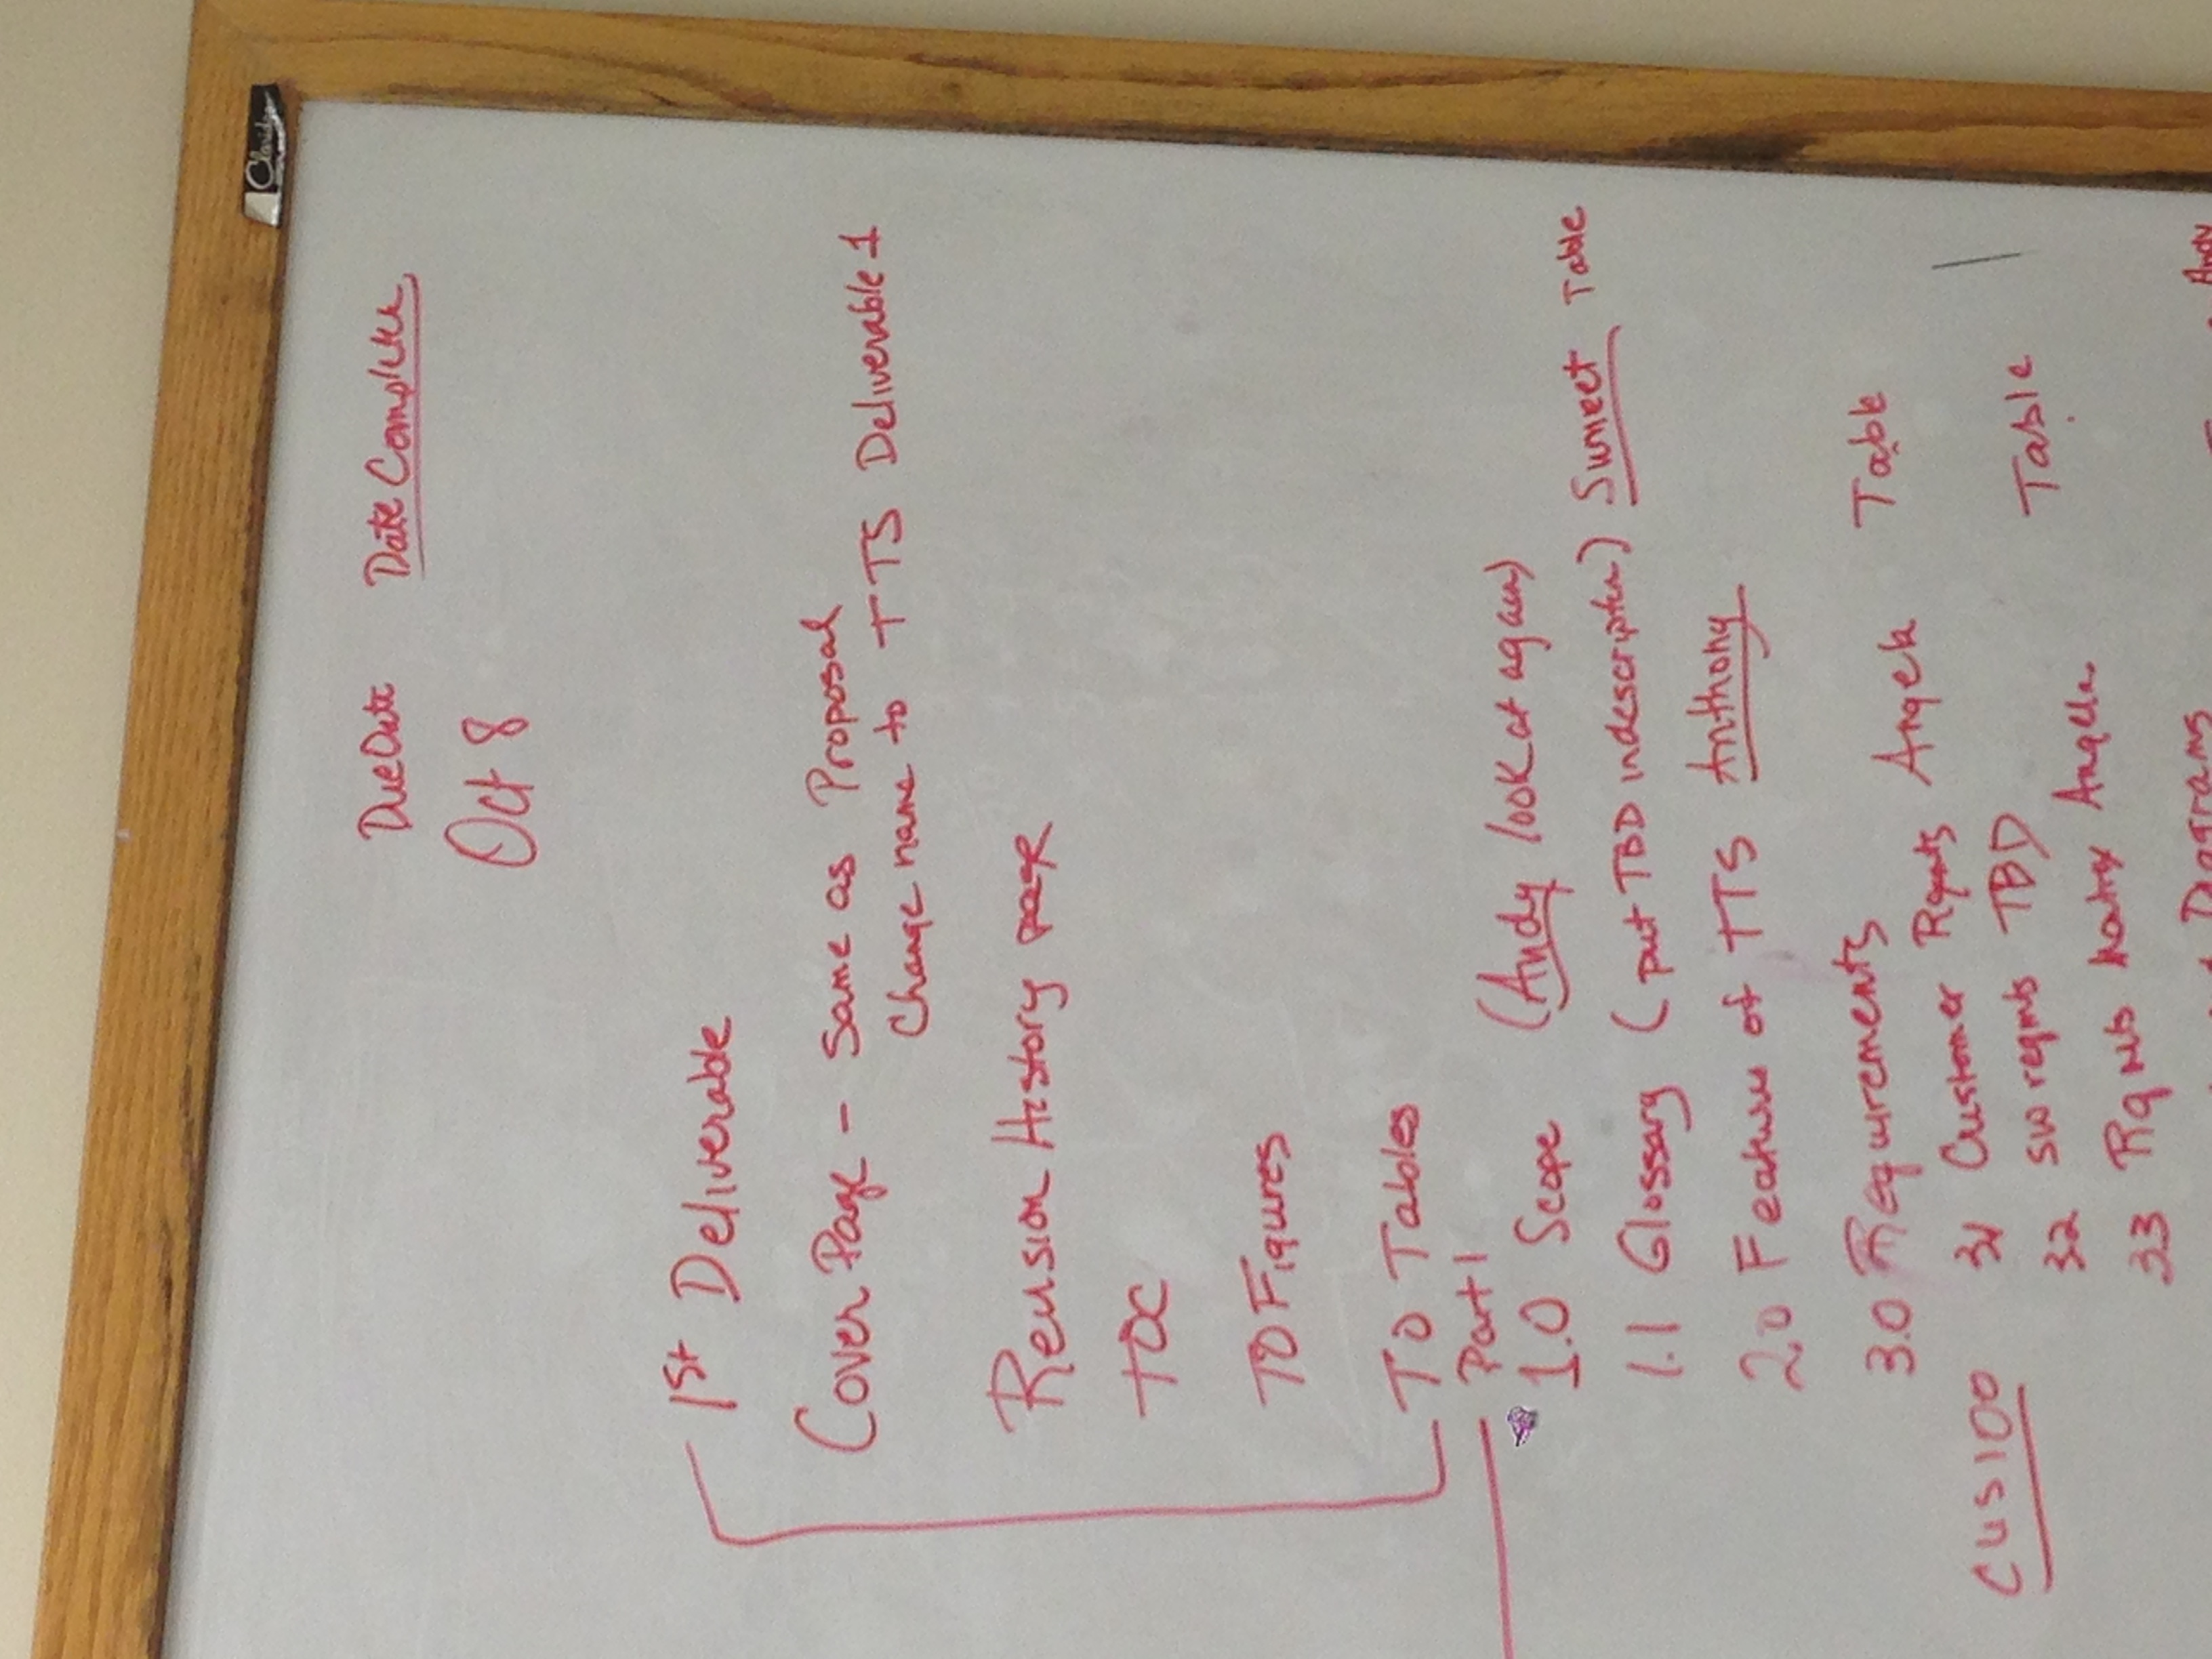 Claridge
Due Date Date Complete
Oct 8
1st Deliverable
Cover Page - Same as Proposal
Change name to TTS Deliverable 1
Revision History page
TOC
TO Figures
TO Tables
Part 1
1.0 Scope (Andy look at again)
1.1 Glossary (put TBD in description) Sumeet Table
2.0 Features of TTS Anthony
3.0 Requirements
CUS100 3.1 Customer Rqmts Angela Table
3.2 SW reqmts TBD
3.3 Rqmts Matrix Angela Table
Diagrams Andy